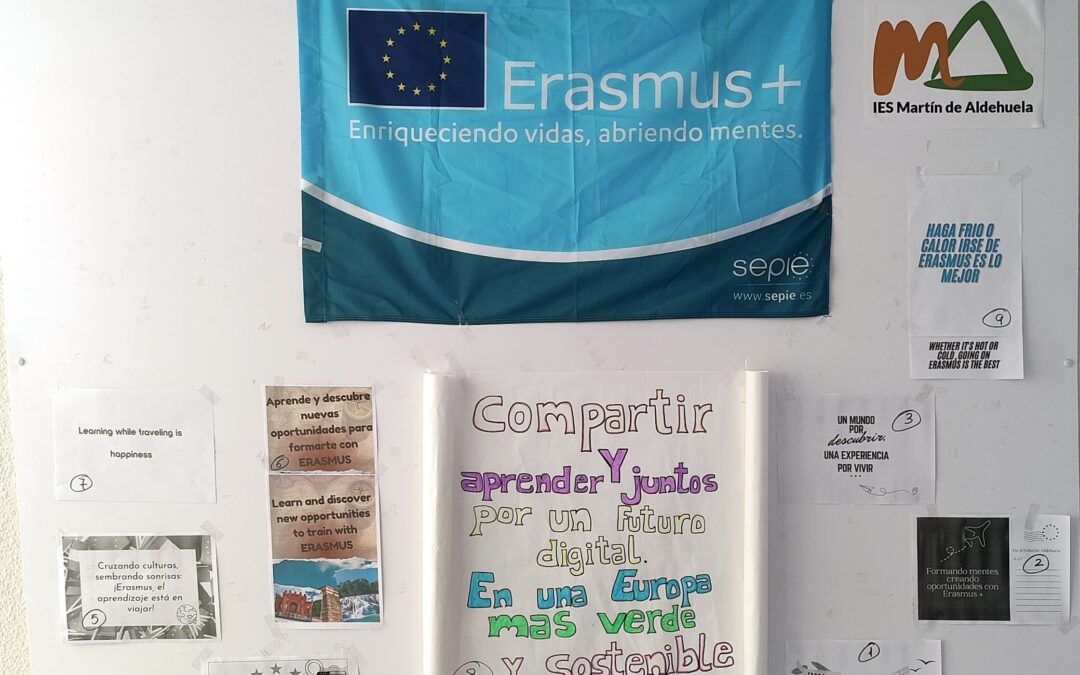 Erasmus+
Enriqueciendo vidas, abriendo mentes.
sepie
www.sepie.es
IES Martín de Aldehuela
HAGA FRIO O
CALOR IRSE DE
ERASMUS ES LO
MEJOR
9
WHETHER IT'S HOT OR
COLD, GOING ON
ERASMUS IS THE BEST
Learning while traveling is
happiness
7
Aprende y descubre
nuevas
oportunidades para
formarte con
ERASMUS
6
Learn and discover
new opportunities
to train with
ERASMUS
Compartir
Y
aprender juntos
por un futuro
digital.
En una Europa
mas verde
y sostenible
UN MUNDO
POR
descubrir,
UNA EXPERIENCIA
POR VIVIR
3
Cruzando culturas,
sembrando sonrisas:
¡Erasmus, el
aprendizaje está en
viajar!
5
Formando mentes,
creando
oportunidades con
Erasmus +
2
1